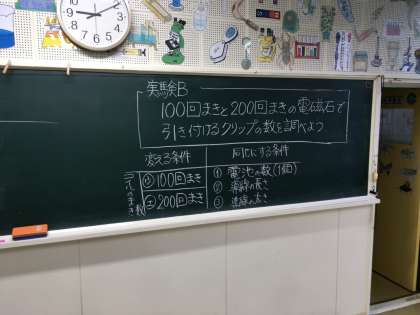 実験B
100回まきと200回まきの電磁石で
引き付けるクリップの数を調べよう
変える条件
同じにする条件
コイルのまき数
100回まき
200回まき
① 電池の数(1個)
② 導線の長さ
③ 導線の太さ